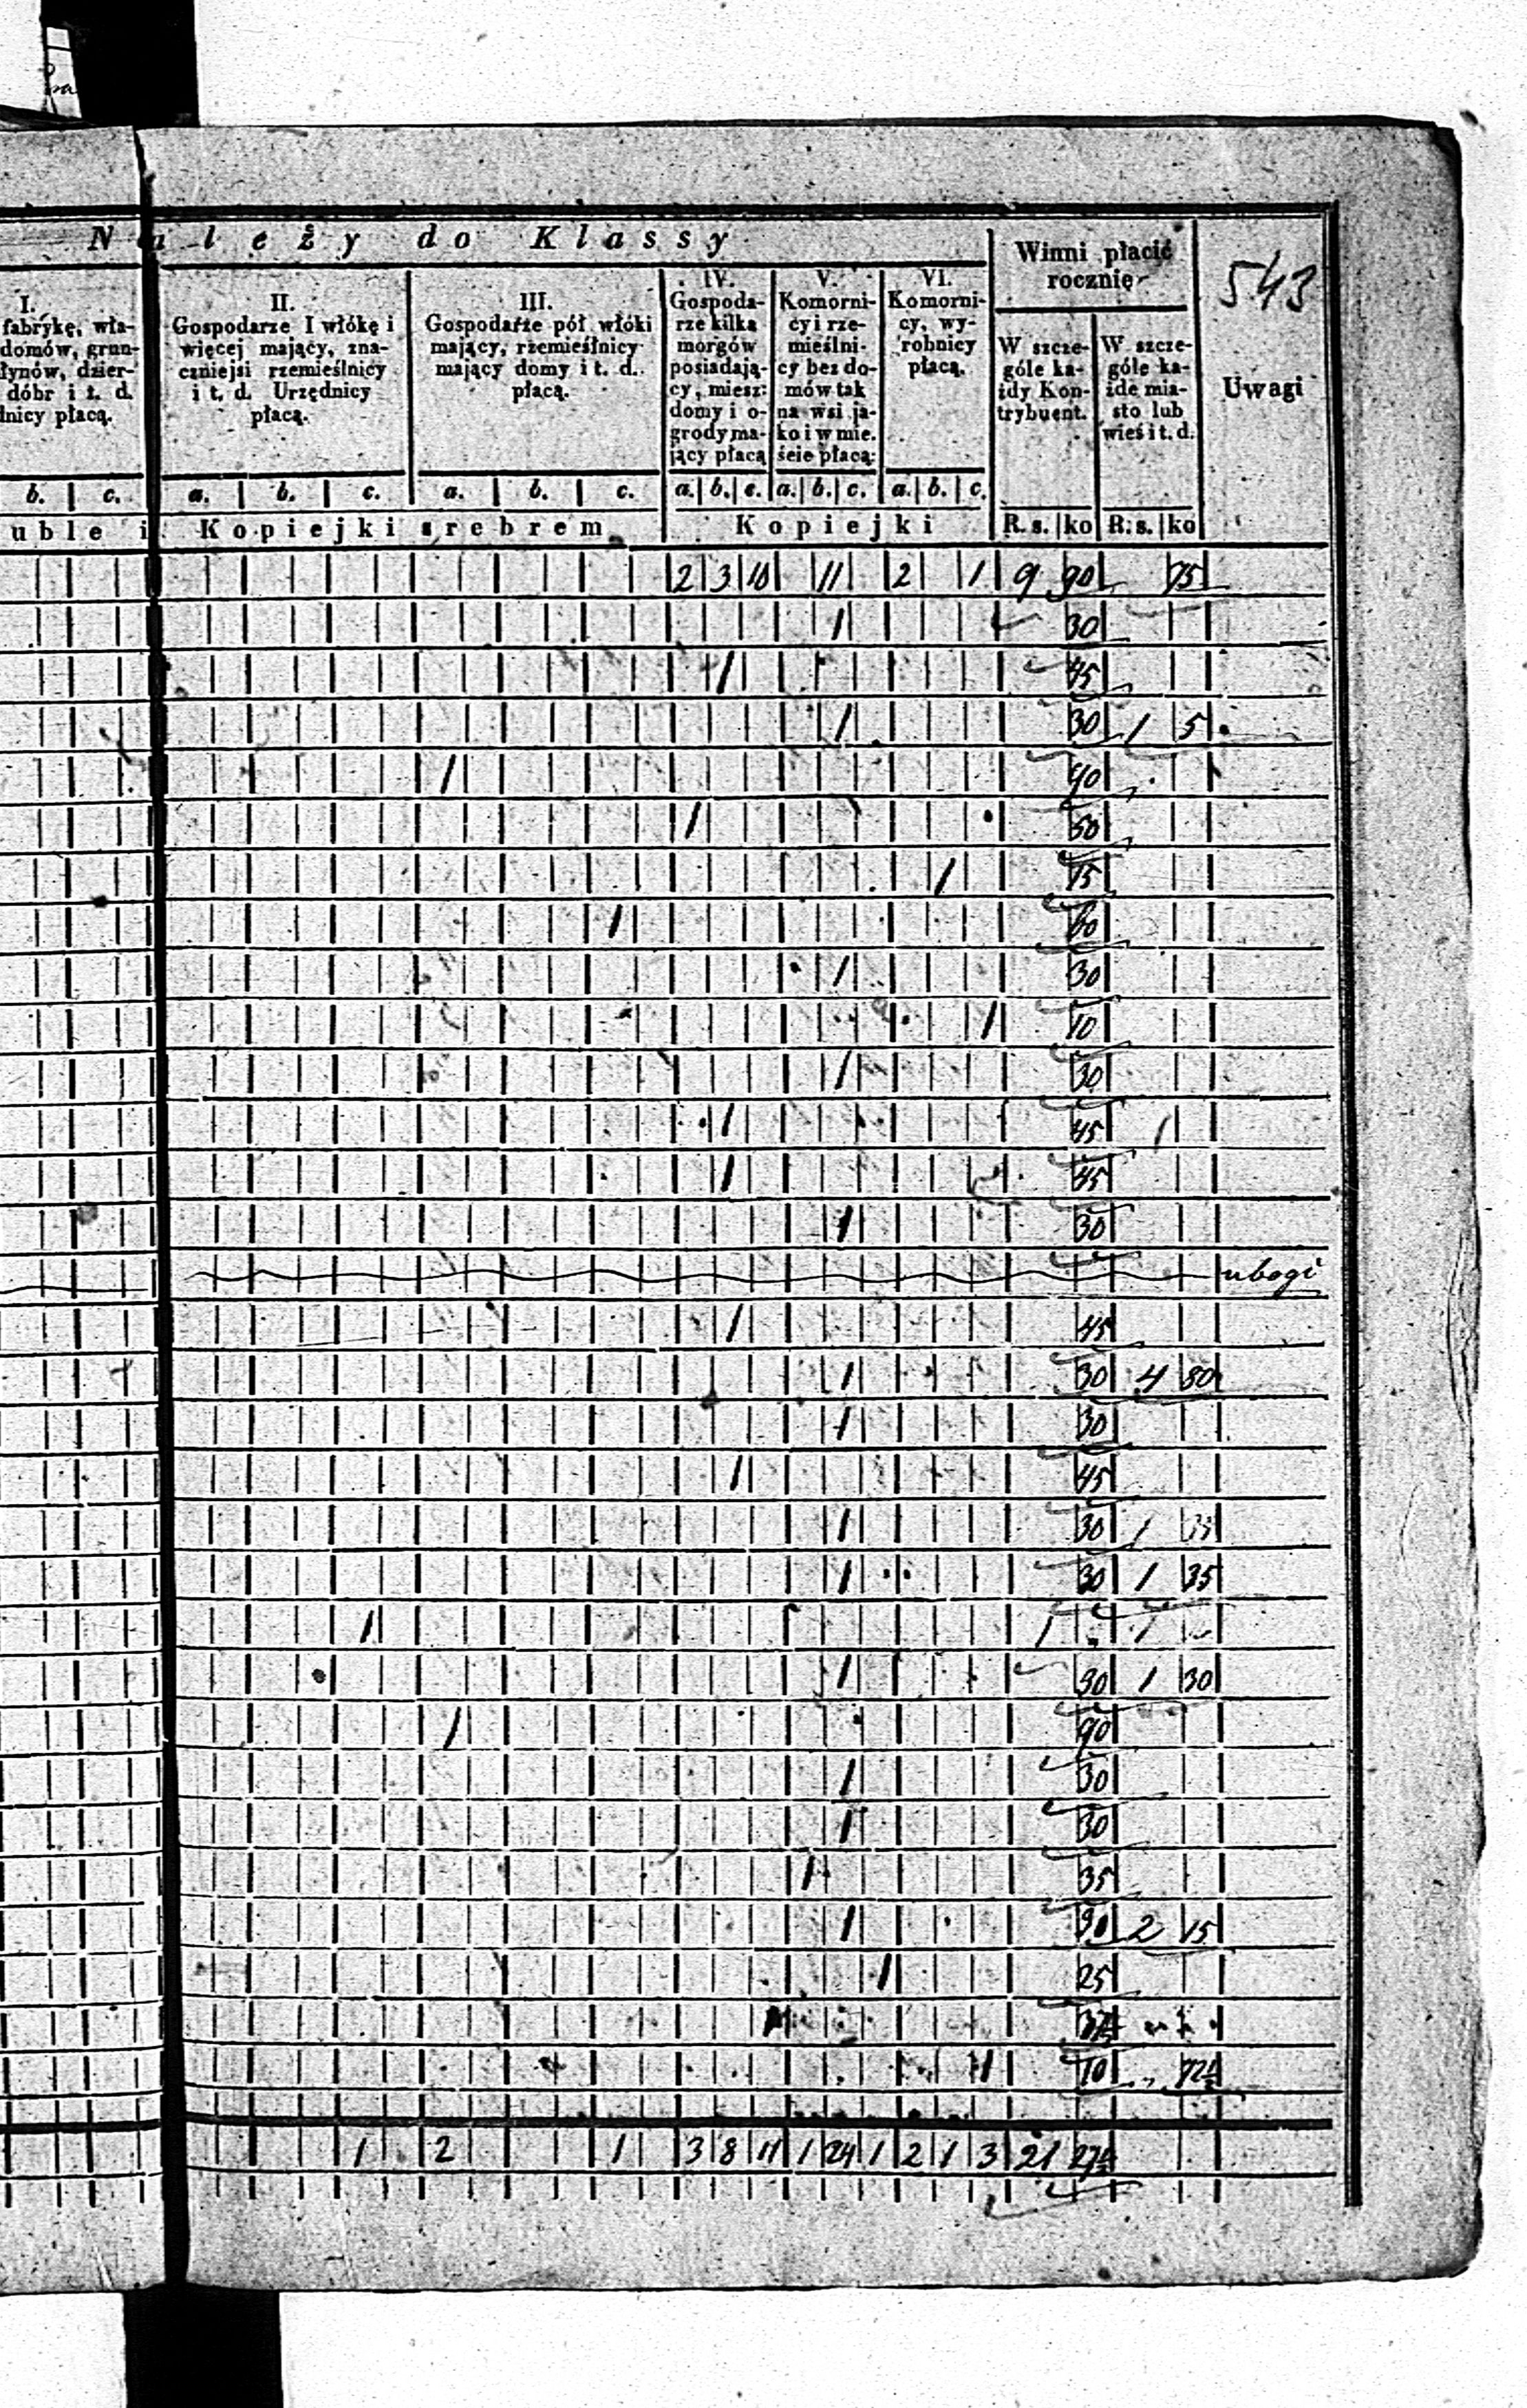 Należy do Klassy
Winni płacić rocznię
543
I.
fabrykę, wła-
domów, grun-
łynów, dzier-
dóbr i t. d.
lnicy płacą.
II.
Gospodarze I włókę i
więcej mający, zna-
czniejsi rzemieślnicy
i t. d. Urzędnicy
płacą.
III.
Gospodarze pół włóki
mający, rzemieślnicy
mający domy i t. d.
płacą.
IV.
Gospoda-
rze kilka
morgów
posiadają-
cy, miesz:
domy i o-
grody ma-
jący płacą
V.
Komorni-
cy i rze-
mieślni-
cy bez do-
mów tak
na wsi ja-
ko i w mie.
ście płacą:
VI.
Komorni-
cy, wy-
robnicy
płacą.
W szcze-
góle ka-
żdy Kon-
trybuent.
W szcze-
góle ka-
żde mia-
sto lub
wieś i t. d.
Uwagi
b. c. a. b. c. a. b. c. a. b. c. a. b. c. a. b. c.
uble i Kopiejki srebrem Kopiejki R. s. ko R. s. ko
2 3 10 11 2 1 9 90 75
1 30
1 45
1 30 1 5
1 90
1 50
1 15
1 60
1 30
1 10
1 30
1 45
1 45
1 30
ubogi
1 45
1 30 4 80
1 30
1 45
1 30 1
1 30 1 35
1 1 1
1 30 1 30
1 90
1 30
1 30
1 35
1 30 2 15
1 25
1 10 72½
1 2 1 3 8 11 1 24 1 2 1 3 21 27½